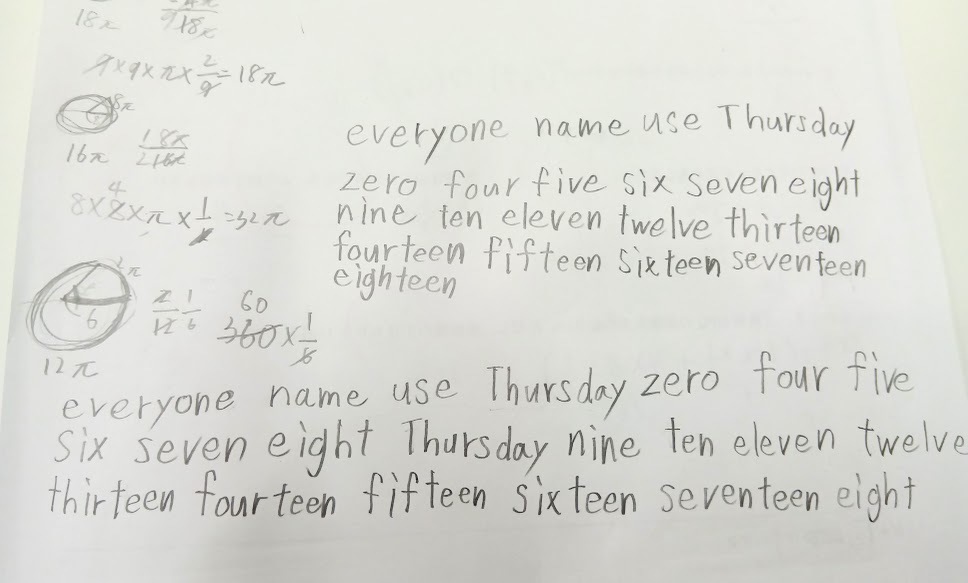 18π
9×9×π×2/9=18π
8π
16π 18π/2
8×8×π×1/ =32π
4
everyone name use Thursday
zero four five six seven eight
nine ten eleven twelve thirteen
fourteen fifteen sixteen seventeen
eighteen
6
12π
2/12 1/6
60
360×1/6
everyone name use Thursday zero four five
six seven eight Thursday nine ten eleven twelve
thirteen fourteen fifteen sixteen seventeen eight